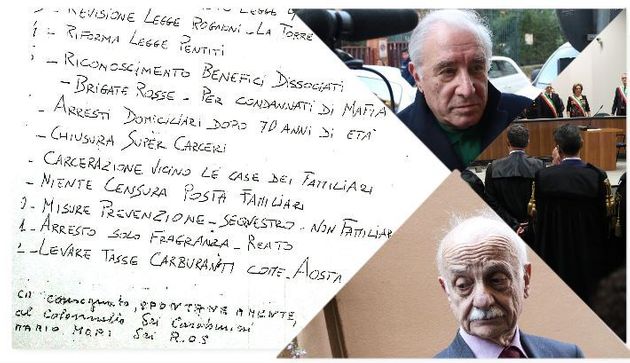 REVISIONE LEGGE ROGNONI - LA TORRE
RIFORMA LEGGE PENTITI
- RICONOSCIMENTO BENEFICI DISSOCIATI
- BRIGATE ROSSE - PER CONDANNATI DI MAFIA
- ARRESTI DOMICILIARI DOPO 70 ANNI DI ETÀ
- CHIUSURA SUPER CARCERI
- CARCERAZIONE VICINO LE CASE DEI FAMILIARI
- NIENTE CENSURA POSTA FAMILIARI
- MISURE PREVENZIONE - SEQUESTRO - NON FAMILIAR
- ARRESTO SOLO FRAGRANZA - REATO
- LEVARE TASSE CARBURANTI COME - AOSTA
consegnato, SPONTANEAMENTE,
al Colonnello dei Carabinieri
MARIO MORI dei R.O.S